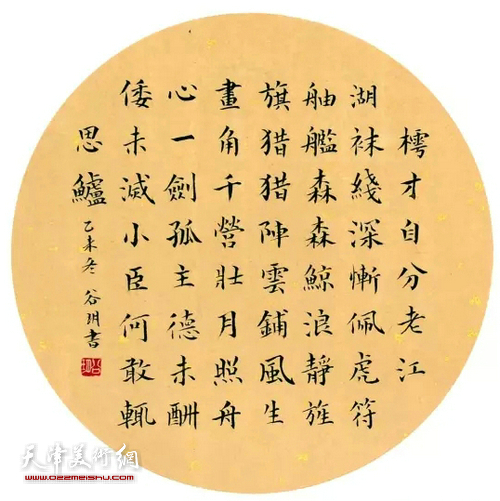 樗才自分老江
湖袜綫深慚佩虎符
舳艦森森鯨浪靜旌
旗猎猎陣雲鋪風生
畫角千營壯月照舟
心一劍孤主德未酬
倭未滅小臣何敢輒
思鱸 乙未冬 谷玥書
天津美術網
www.022meishu.com